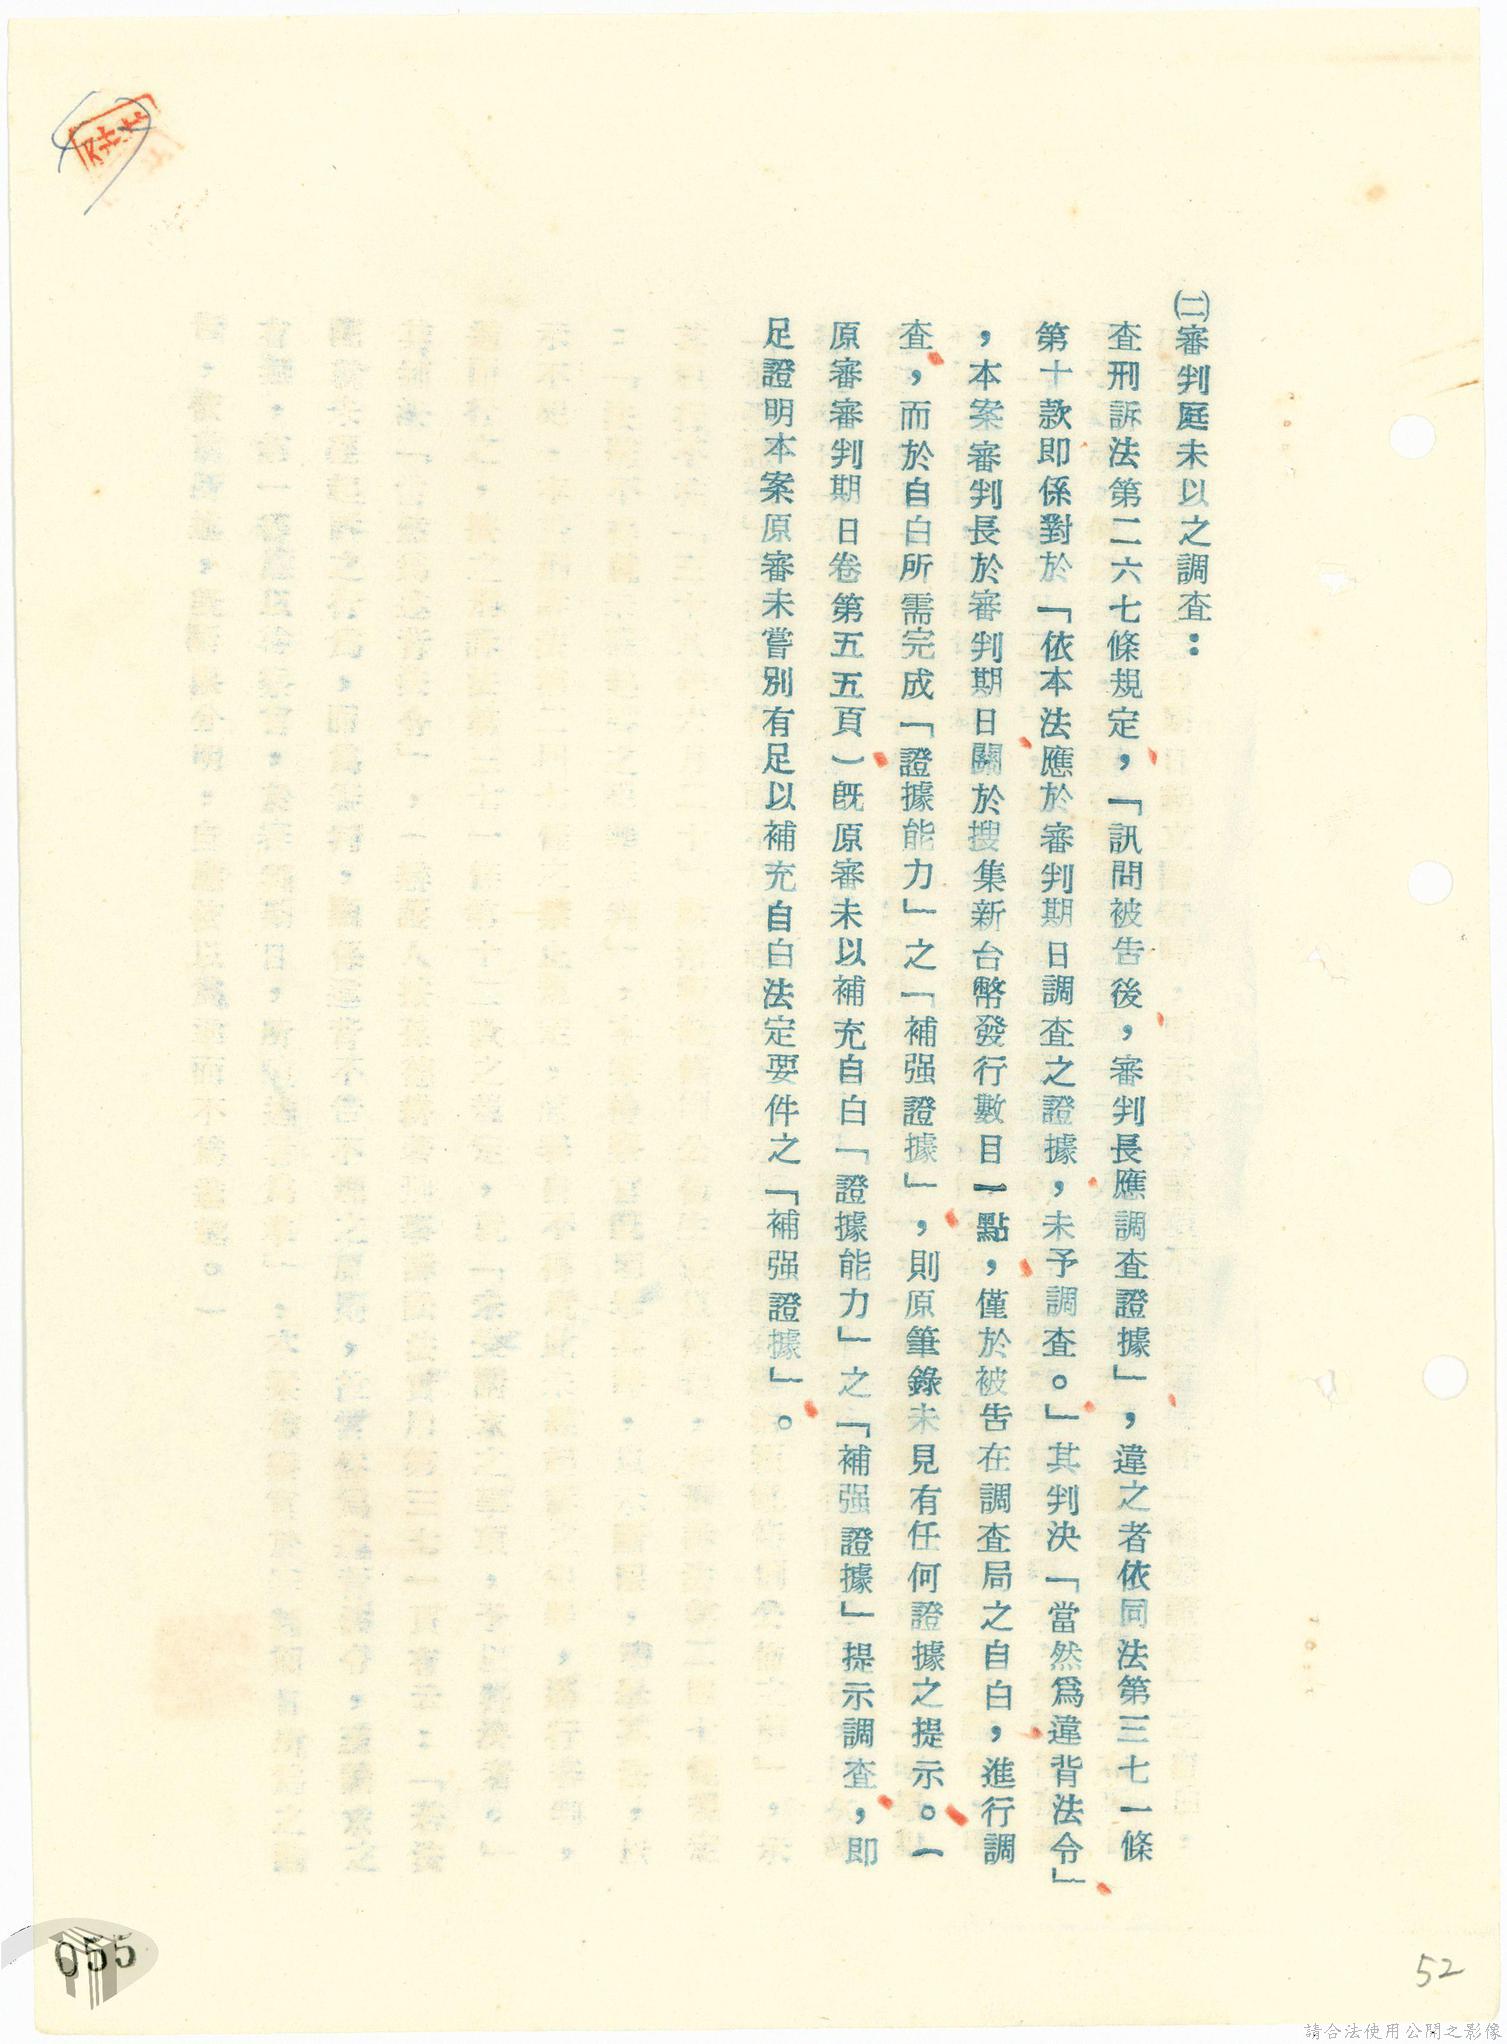 ㈡審判庭未以之調查：
查刑訴法第二六七條規定，「訊問被告後，審判長應調查證據」，違之者依同法第三七一條
第十款即係對於「依本法應於審判期日調查之證據，未予調查。」其判決「當然為違背法令」
，本案審判長於審判期日關於搜集新台幣發行數目一點，僅於被告在調查局之自白，進行調
查，而於自白所需完成「證據能力」之「補强證據」，則原筆錄未見有任何證據之提示。一
原審審判期日卷第五五頁）既原審未以補充自白「證據能力」之「補强證據」提示調查，即
足證明本案原審未嘗別有足以補充自白法定要件之「補强證據」。
055
52
請合法使用公開之影像